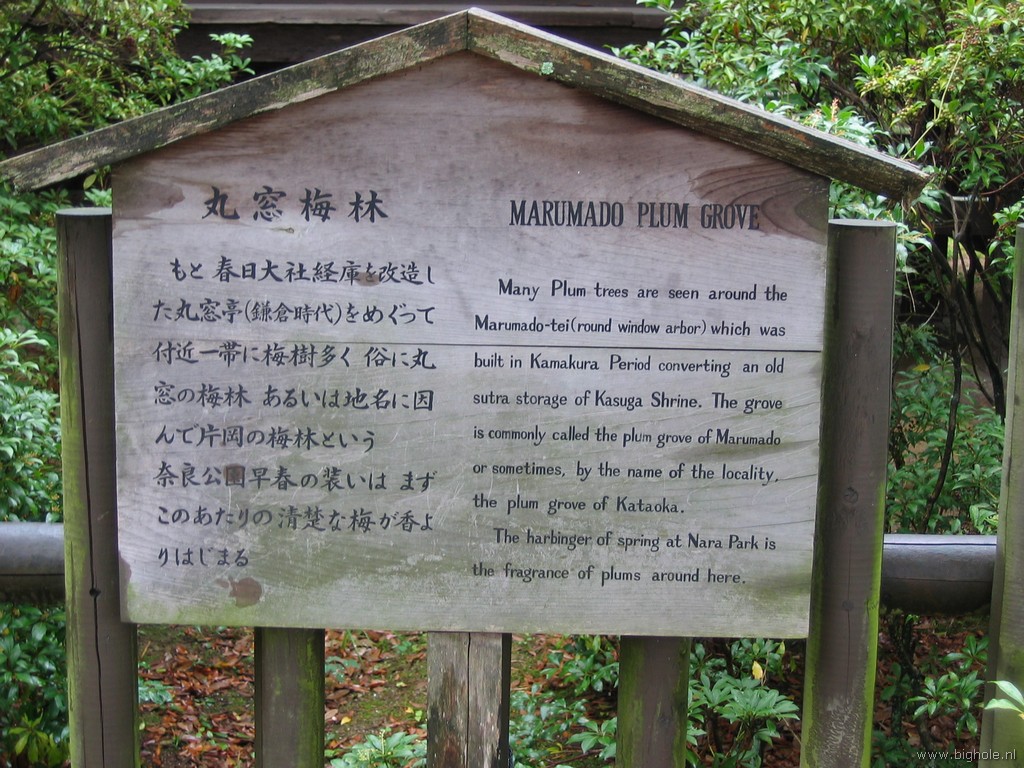 丸窓梅林
もと 春日大社経庫を改造し
た丸窓亭(鎌倉時代)をめぐって
付近一帯に梅樹多く 俗に丸
窓の梅林 あるいは地名に因
んで片岡の梅林という
奈良公園早春の装いは まず
このあたりの清楚な梅が香よ
りはじまる
MARUMADO PLUM GROVE
Many Plum trees are seen around the
Marumado-tei(round window arbor) which was
built in Kamakura Period converting an old
sutra storage of Kasuga Shrine. The grove
is commonly called the plum grove of Marumado
or sometimes, by the name of the locality,
the plum grove of Kataoka.
The harbinger of spring at Nara Park is
the fragrance of plums around here.
www.bighole.nl